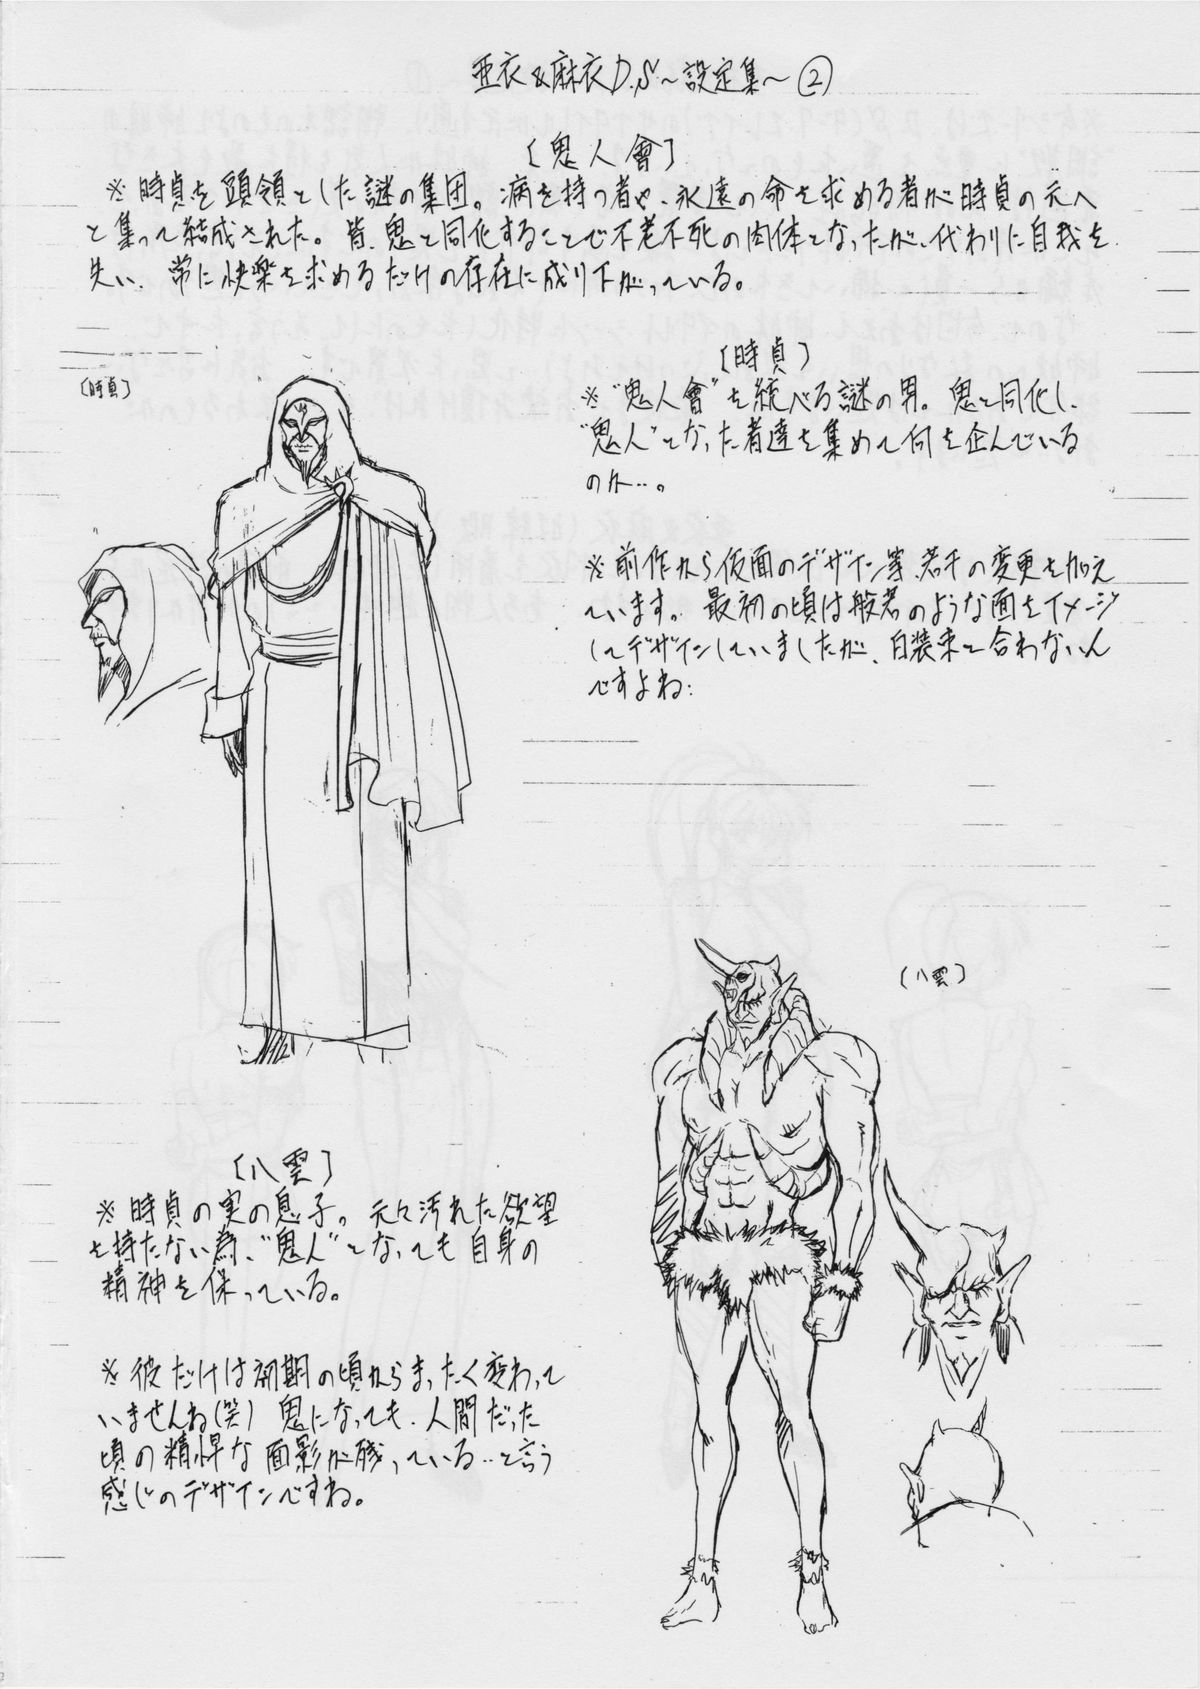 亜衣&麻衣D.S～設定集～②
〔鬼人會〕
※時貞を頭領とした謎の集団。病を持つ者や、永遠の命を求める者が時貞の元へ
と集って結成された。皆、鬼と同化することで不老不死の肉体となったが、代わりに自我を
失い、常に快楽を求めるだけの存在に成り下がっている。
〔時貞〕
〔時貞〕
※“鬼人會”を統べる謎の男。鬼と同化し、
“鬼人”となった者達を集めて何を企んでいる
のか…。
※前作から仮面のデザイン等、若干の変更を加え
ています。最初の頃は般若のような面をイメージ
してデザインしていましたが、白装束と合わないん
ですよね:
〔八雲〕
〔八雲〕
※時貞の実の息子。元々汚れた欲望
を持たない為、“鬼人”となっても自身の
精神を保っている。
※彼だけは初期の頃からまったく変わって
いませんね(笑) 鬼になっても、人間だった
頃の精悍な面影が残っている…と言う
感じのデザインですね。